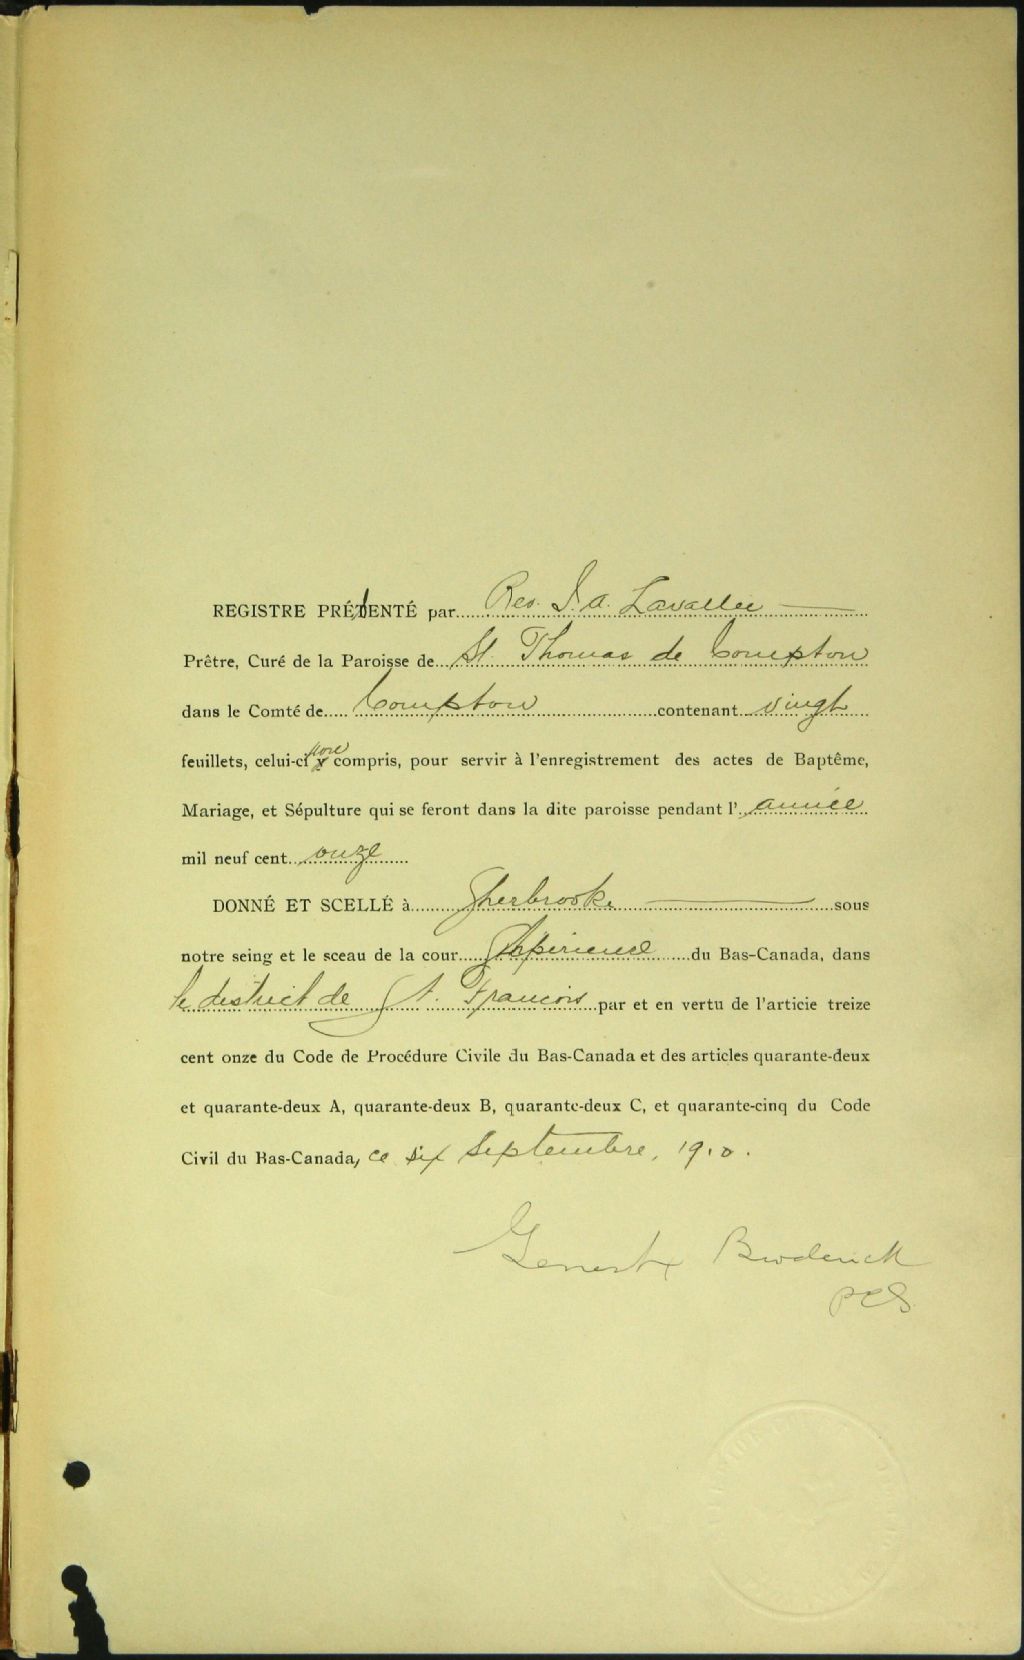 REGISTRE PRÉSENTÉ par Rev. J. A. Lavallee
Prêtre, Curé de la Paroisse de St. Thomas de Compton
dans le Comté de Compton contenant vingt
feuillets, celui-ci non compris, pour servir à l'enregistrement des actes de Baptême,
Mariage, et Sépulture qui se feront dans la dite paroisse pendant l' année
mil neuf cent onze
DONNÉ ET SCELLÉ à Sherbrooke sous
notre seing et le sceau de la cour Supérieure du Bas-Canada, dans
le district de St. Francois par et en vertu de l'articie treize
cent onze du Code de Procédure Civile du Bas-Canada et des articles quarante-deux
et quarante-deux A, quarante-deux B, quarante-deux C, et quarante-cinq du Code
Civil du Bas-Canada, ce six Septembre, 1910.
Genest & Broderick
PCS